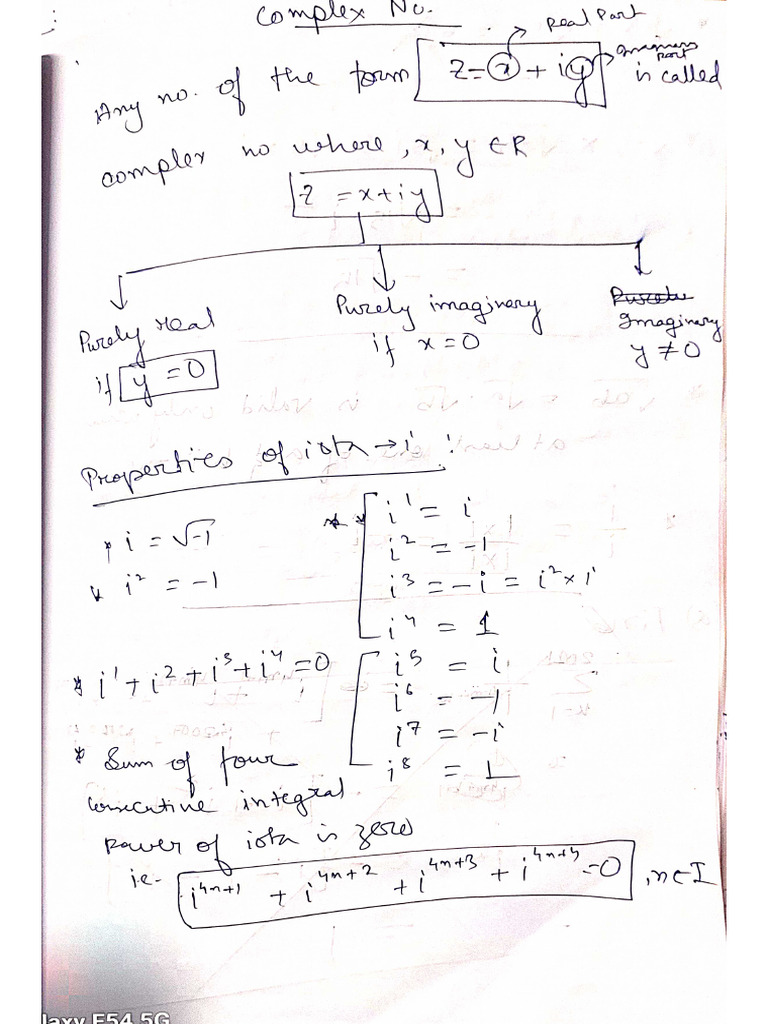 Complex No.
Real Part
Any no. of the form z = x + iy is called
Imaginary part
complex no where, x, y ∈ R
z = x + iy
Purely real
if y = 0
Purely imaginary
if x = 0
Imaginary
y ≠ 0
Properties of iota → i :
* i = √-1
* i² = -1
* * i¹ = i
i² = -1
i³ = -i = i² × i
i⁴ = 1
* i¹ + i² + i³ + i⁴ = 0
i⁵ = i
i⁶ = -1
i⁷ = -i
i⁸ = 1
* Sum of four
consecutive integral
power of iota is zero
i.e- i⁴ⁿ⁺¹ + i⁴ⁿ⁺² + i⁴ⁿ⁺³ + i⁴ⁿ⁺⁴ = 0, n ∈ I
laxy F54 5G